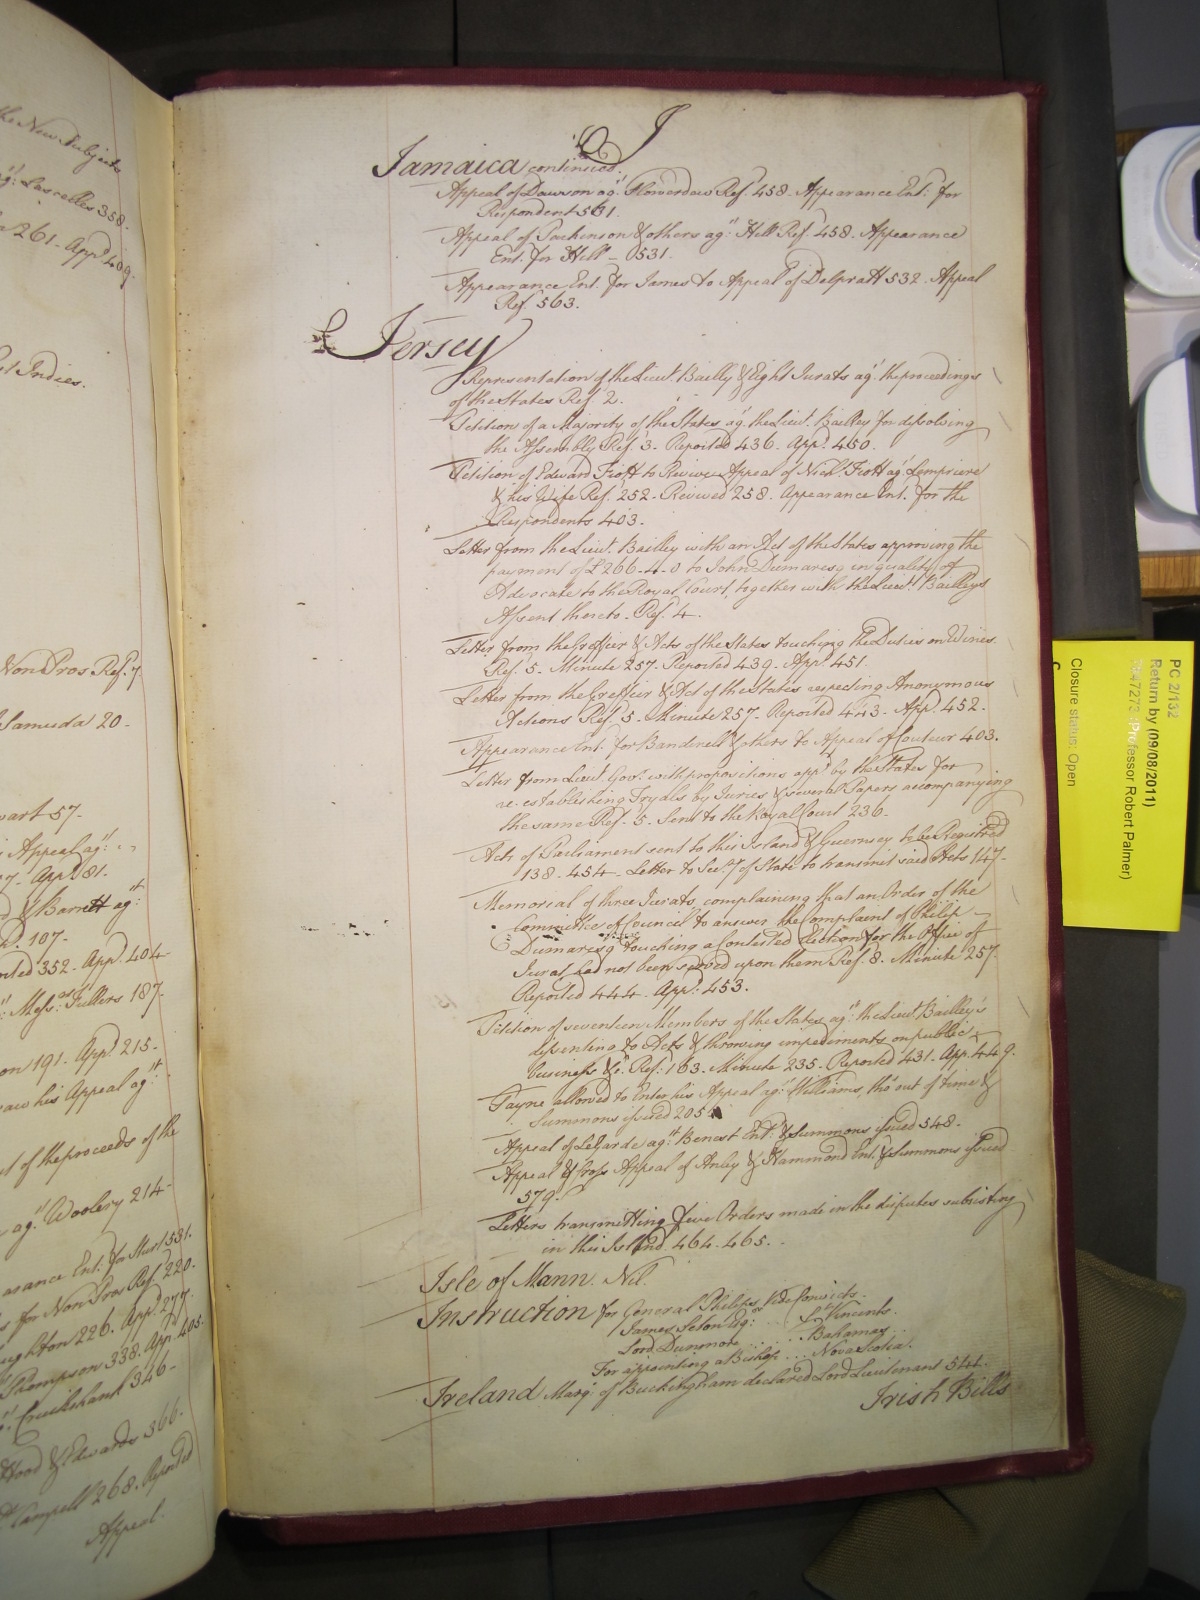 the New Subjects
ag.t Lascelles 358.
261. App.d 409.
st Indies.
Non Pros Ref. 7
Samuda 20 -
part 57 -
Appeal ag.t
7 - App.d 81.
d & Barrett ag.t
d. 107 -
rted 352 - App.d 404
Mess.rs Fullers 187.
on 191 - App.d 215 -
raw his Appeal ag.t
of the proceeds of the
ag.t Woolery 214 -
arance Ent.d for 531.
s for Non Pros Ref. 220.
ughton 226. App.d 277.
Thompson 338. App.d 405.
Cruikshank 346 -
Hood & Edwards 366.
Campell 268. Reported
Appeal.
J
Jamaica continued.
Appeal of Dawson ag.t Flowerdew Ref.d 458. Appearance Ent.d for
Respondent 531.
Appeal of Parkinson & others ag.t Hill Ref.d 458. Appearance
Ent. for Hill - 531.
Appearance Ent.d for James to Appeal of Delpratt 532. Appeal
Ref.d 563.
Jersey
Representation of the Lieut. Bailly & Eight Jurats ag.t the proceedings
of the States Ref.d 2.
Petitions of a Majority of the States ag.t the Lieut. Bailley for dissolving
the Assembly Ref.d 3. Reported 436. App.d 450.
Petition of Edward Fiott to Revive Appeal of Nich.s Fiott ag.t Lempriere
& his Wife Ref.d 252 - Revived 258. Appearance Ent. for the
Respondents 403.
Letter from the Lieut. Bailley with an Act of the States approving the
payment of £266-4-0 to John Dumaresq in quality of
Advocate to the Royal Court, together with the Lieut. Bailleys
Assent thereto - Ref.d 4.
Letter from the Greffier & Acts of the States touching the Duties on Wines.
Ref.d 5. Minute 257. Reported 439. App.d 451.
Letter from the Greffier & Act of the States respecting Anonymous
Actions Ref.d 5 - Minute 257 - Reported 443 - App.d 452.
Appearance Ent. for Bandinell & others to Appeal of Couteur 403.
Letter from Lieut. Gov.r with propositions app.d by the States for
re-establishing Tryals by Juries & several Papers accompanying
the same Ref.d 5. Sent to the Royal Court 236.
Acts of Parliament sent to this Island & Guernsey to be Registred
138 - 454 - Letter to Sec.ry of State to transmit said Acts 147 -
Memorial of three Jurats, complaining that an Order of the
Committee of Council to answer the Complaint of Philip
Dumaresq touching a Contested Election for the Office of
Jurat had not been served upon them Ref.d 8. Minute 257.
Reported 444. App.d 453.
Petition of seventeen Members of the States ag.t the Lieut. Bailley's
dissenting to Acts & throwing impediments on public
business &c. Ref.d 163. Minute 235. Reported 431. App. 449.
Payne allowed to Enter his Appeal ag.t Williams, tho' out of time &
Summons issued 205.
Appeal of LeGarde ag.t Benest Ent.d & Summons issued 548.
Appeal & Cross Appeal of Anley & Hammond Ent. & Summons issued
579.
Letters transmitting five Orders made in the disputes subsisting
in this Island 464 - 465.
Isle of Mann. Nil.
Instruction for General Philips, Vide Convicts.
James Seton Esq.r .. S.t Vincents.
Lord Dunmore .... Bahamas
For appointing a Bishop ... Nova Scotia.
Ireland Marq. of Buckingham declared Lord Lieutenant 544.
Irish Bills
PC 2/132
Return by (09/08/2011)
(Professor Robert Palmer)
Closure status: Open